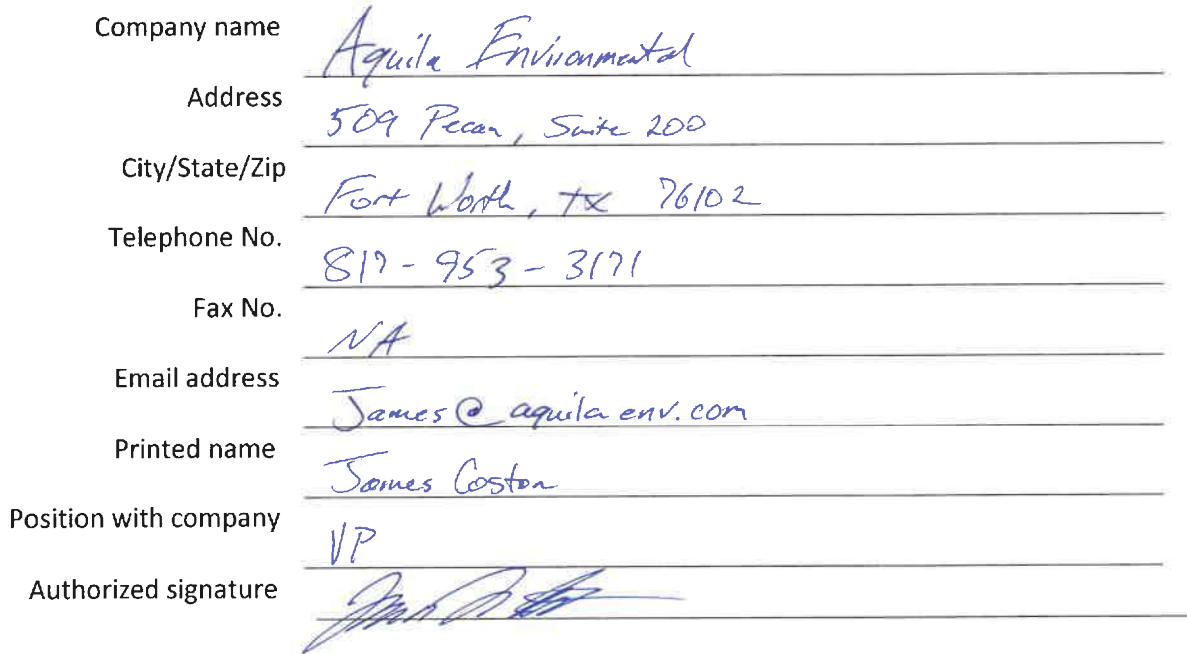 Company name Aquila Environmental
Address 509 Pecan, Suite 200
City/State/Zip Fort Worth, TX 76102
Telephone No. 817-953-3171
Fax No. NA
Email address James@aquilaenv.com
Printed name James Coston
Position with company VP
Authorized signature